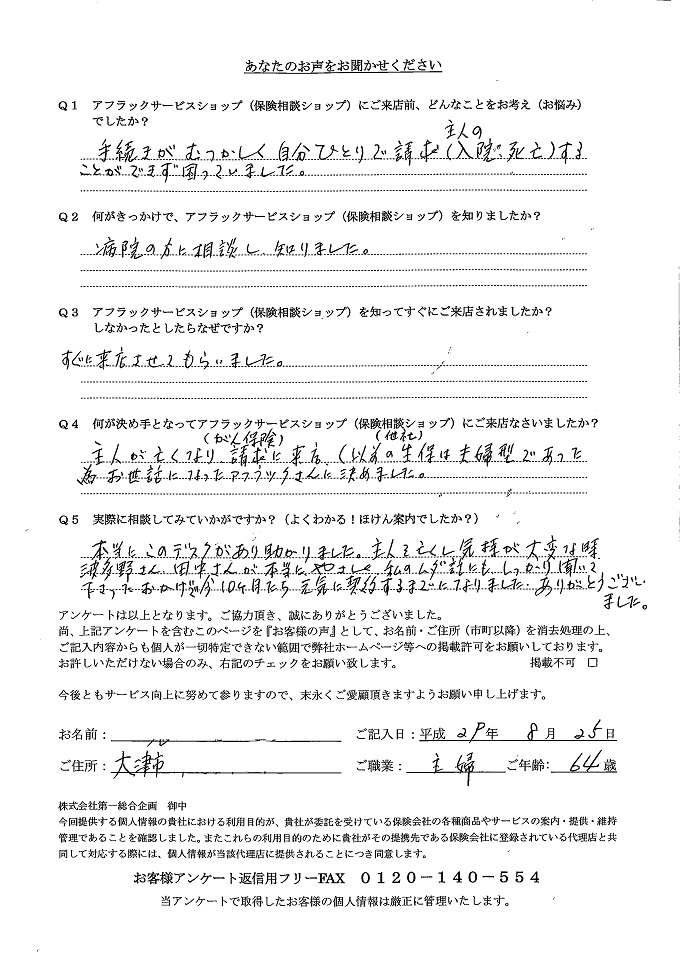 あなたのお声をお聞かせください
Q1 アフラックサービスショップ（保険相談ショップ）にご来店前、どんなことをお考え（お悩み）
でしたか？
主人の
手続きがむつかしく自分ひとりで請求（入院、死亡）する
ことができず困っていました。
Q2 何がきっかけで、アフラックサービスショップ（保険相談ショップ）を知りましたか？
病院の方に相談し、知りました。
Q3 アフラックサービスショップ（保険相談ショップ）を知ってすぐにご来店されましたか？
しなかったとしたらなぜですか？
すぐに来店させてもらいました。
Q4 何が決め手となってアフラックサービスショップ（保険相談ショップ）にご来店なさいましたか？
（がん保険）（他社）
主人が亡くなり 請求に来店（以前の生保は夫婦型であった
為お世話になったアフラックさんに決めました。
Q5 実際に相談してみていかがですか？（よくわかる！ほけん案内でしたか？）
本当にこのデスクがあり助かりました。主人を亡くし気持が大変な時
波多野さん、田中さんが本当に、やさしく、私のムダ話にも、しっかり聞いて
下さったおかげで今10ヶ月たち元気に契約するまでになりました。ありがとうござい
ました。
アンケートは以上となります。ご協力頂き、誠にありがとうございました。
尚、上記アンケートを含むこのページを『お客様の声』として、お名前・ご住所（市町以降）を消去処理の上、
ご記入内容からも個人が一切特定できない範囲で弊社ホームページ等への掲載許可をお願いしております。
お許しいただけない場合のみ、右記のチェックをお願い致します。 掲載不可 □
今後ともサービス向上に努めて参りますので、末永くご愛顧頂きますようお願い申し上げます。
お名前： ご記入日：平成 29年 8月 25日
ご住所：大津市 ご職業：主婦 ご年齢：64歳
株式会社第一総合企画 御中
今回提供する個人情報の貴社における利用目的が、貴社が委託を受けている保険会社の各種商品やサービスの案内・提供・維持
管理であることを確認しました。またこれらの利用目的のために貴社がその提携先である保険会社に登録されている代理店と共
同して対応する際には、個人情報が当該代理店に提供されることにつき同意します。
お客様アンケート返信用フリーFAX 0120－140－554
当アンケートで取得したお客様の個人情報は厳正に管理いたします。